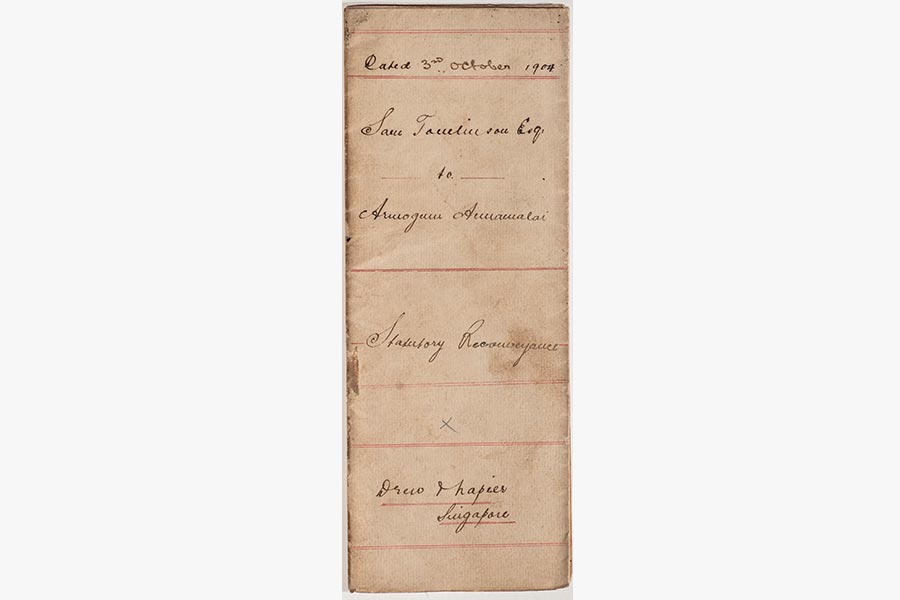 Dated 3rd October 1904
Sam Tomlinson Esq.
to
Armogum Annamalai
Statutory Reconveyance
x
Drew & Napier
Singapore